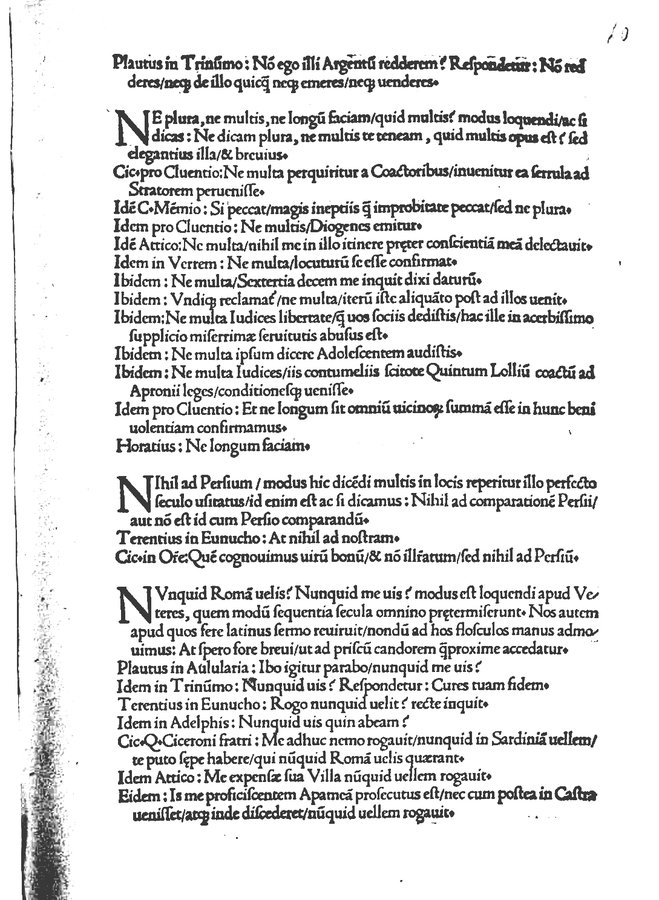 10
Plautus in Trinūmo: Nō ego illi Argētū redderem? Respōdetur: Nō red
deres/neqꝫ de illo quicqꝫ neqꝫ emeres/neqꝫ uenderes.
NE plura, ne multis, ne longū faciam/quid multis? modus loquendi/ac si
dicas: Ne dicam plura, ne multis te teneam, quid multis opus est? sed
elegantius illa/& breuius.
Cic.pro Cluentio: Ne multa perquiritur a Coactoribus/inuenitur ea serrula ad
Stratorem peruenisse.
Idē C.Mēmio: Si peccat/magis ineptiis q̄ improbitate peccat/sed ne plura.
Idem pro Cluentio: Ne multis/Diogenes emitur.
Idē Attico: Ne multa/nihil me in illo itinere pręter conscientiā meā delectauit.
Idem in Verrem: Ne multa/locuturū se esse confirmat.
Ibidem: Ne multa/Sextertia decem me inquit dixi daturū.
Ibidem: Vndiqꝫ reclamat̄/ne multa/iterū iste aliquāto post ad illos uenit.
Ibidem: Ne multa Iudices libertate/q̄ uos sociis dedistis/hac ille in acerbissimo
supplicio miserrimæ seruitutis abusus est.
Ibidem: Ne multa ipsum dicere Adolescentem audistis.
Ibidem: Ne multa Iudices/iis contumeliis scitote Quintum Lolliū coactū ad
Apronii leges/conditionesqꝫ uenisse.
Idem pro Cluentio: Et ne longum sit omniū uicinoꝝ summā esse in hunc beni
uolentiam confirmamus.
Horatius: Ne longum faciam.
NIhil ad Persium/modus hic dicēdi multis in locis reperitur illo perfecto
seculo usitatus/id enim est ac si dicamus: Nihil ad comparationē Persii/
aut nō est id cum Persio comparandū.
Terentius in Eunucho: At nihil ad nostram.
Cic.in Or̄e: Quē cognouimus uirū bonū/& nō illr̄atum/sed nihil ad Persiū.
NVnquid Romā uelis? Nunquid me uis? modus est loquendi apud Ve/
teres, quem modū sequentia secula omnino pręetermiserunt. Nos autem
apud quos fere latinus sermo reuiruit/nondū ad hos flosculos manus admo/
uimus: At spero fore breui/ut ad priscū candorem q̄proxime accedatur.
Plautus in Aulularia: Ibo igitur parabo/nunquid me uis?
Idem in Trinūmo: Nunquid uis? Respondetur: Cures tuam fidem.
Terentius in Eunucho: Rogo nunquid uelit? recte inquit.
Idem in Adelphis: Nunquid uis quin abeam?
Cic.Q.Ciceroni fratri: Me adhuc nemo rogauit/nunquid in Sardiniā uellem/
te puto sępe habere/qui nūquid Romā uelis quærant.
Idem Attico: Me expensæ sua Villa nūquid uellem rogauit.
Eidem: Is me proficiscentem Apameā prosecutus est/nec cum postea in Castra
uenisset/atqꝫ inde discederet/nūquid uellem rogauit.